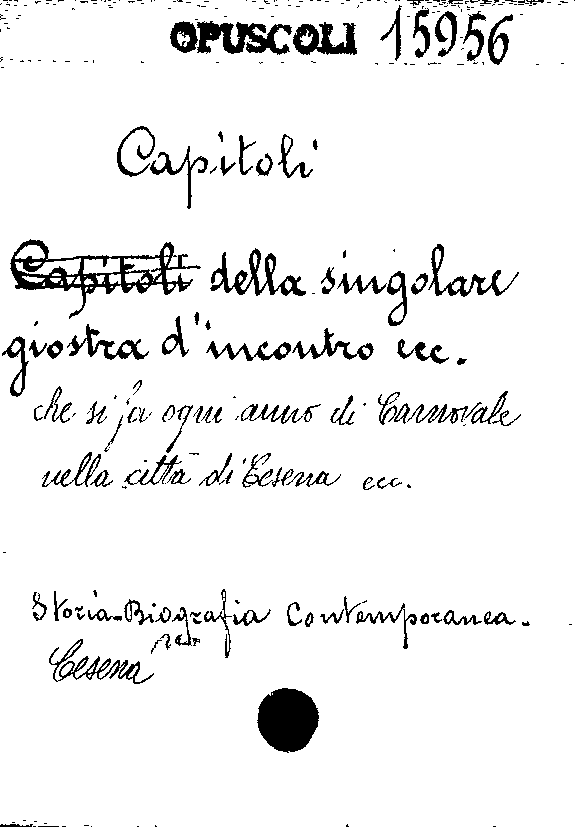 OPUSCOLI 15956
Capitoli
Capitoli della singolare
giostra d'incontro ecc.
che si fa ogni anno di Carnovale
nella città di Cesena ecc.
Storia-Biografia Contemporanea.
Cesena